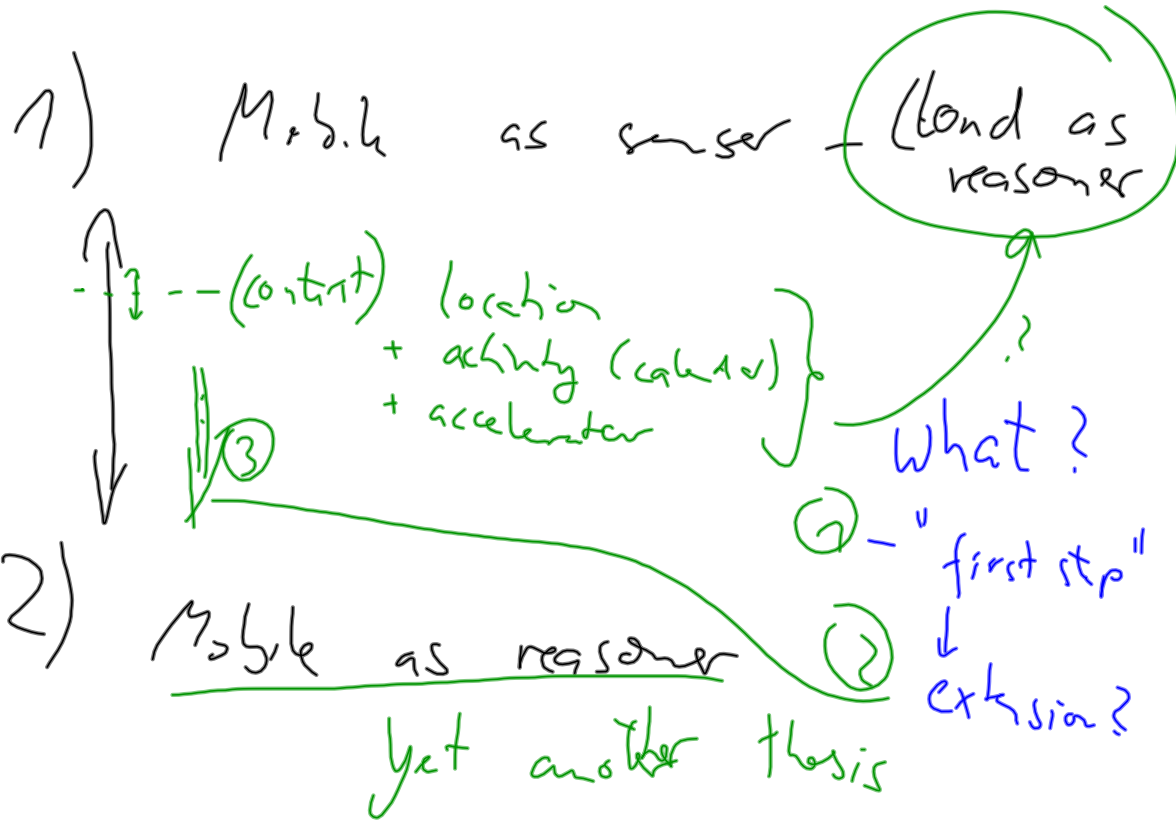 1) Mobile as senser – Cloud as
reasoner
(context) location
+ activity (calendar)
+ accelerator
?
3
What?
1 – "first step"
2) Mobile as reasoner
2
extension?
Yet another thesis